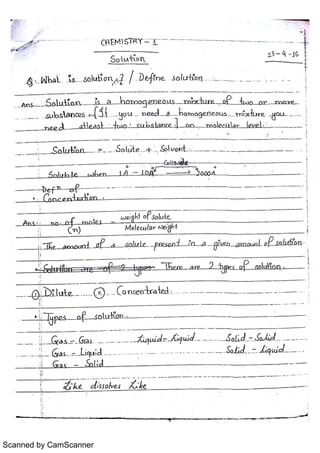 CHEMISTRY - 1
25-4-16
Solution
Q. What is solution? / Define solution
Ans Solution is a homogeneous mixture of two or more
substances [If you need a homogeneous mixture you
need atleast two substance] on molecular level.
Solution = Solute + Solvent
Colloidal
Soluble when 1Å - 10Å ⟶ 1000Å
Defⁿ of
Concentration
Ans. no. of moles (n) = weight of solute / Molecular weight
The amount of a solute present in a given amount of solution.
There are 2 types of solution.
① Dilute ② Concentrated
• Types of solution.
Gas - Gas Liquid - Liquid Solid - Solid
Gas - Liquid Solid - Liquid
Gas - Solid
Like dissolves Like
Scanned by CamScanner